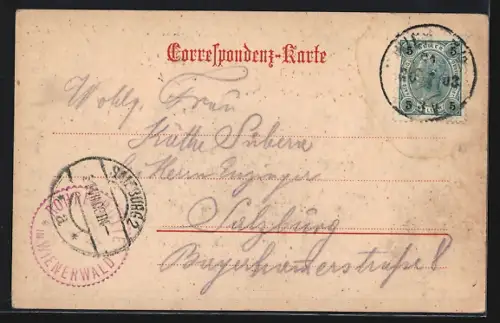 Correspondenz-Karte
5 5
5 5
Wohlg. Frau
Käthe Subern
b/ Herrn Enzinger
Salzburg
Bayerhamerstraße 8
SALZBURG 2
IM WIENERWALD